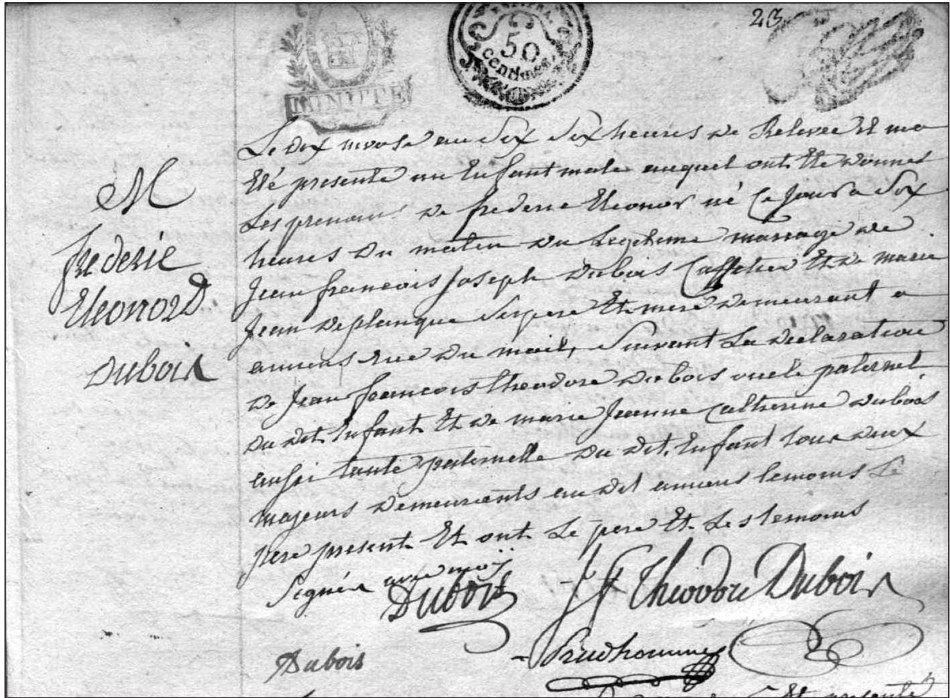 23
50
centimes
MINUTE
Le dix nivose an six six heures de Relevée Et ma
Eté presenté un Enfant male auquel ont Eté donnés
Les prenoms de frederic Eleonor né ce jour a six
heures du matin du Legitime mariage de
Jean francois Joseph Dubois Caffetier Et de marie
Jean Deplanque Ses pere Et mere demeurant a
amiens rue du mail, Suivant La declaration
De Jean francois theodore Dubois oncle paternel
du dit Enfant Et de marie Jeanne Catherine Dubois
aussi tante paternelle du dit Enfant tous deux
majeurs Demeurants au dit amiens temoins Le
pere present Et ont Le pere Et Les temoins
Signés avec moy
M
frederic
Eleonord
Dubois
Dubois
J f Theodore Dubois
Dubois
Prudhomme
Et presenté